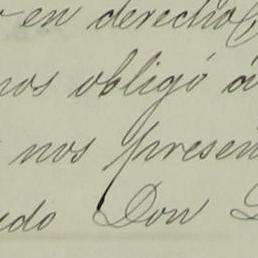 en derecho
nos obligó á
nos presen
edo Don